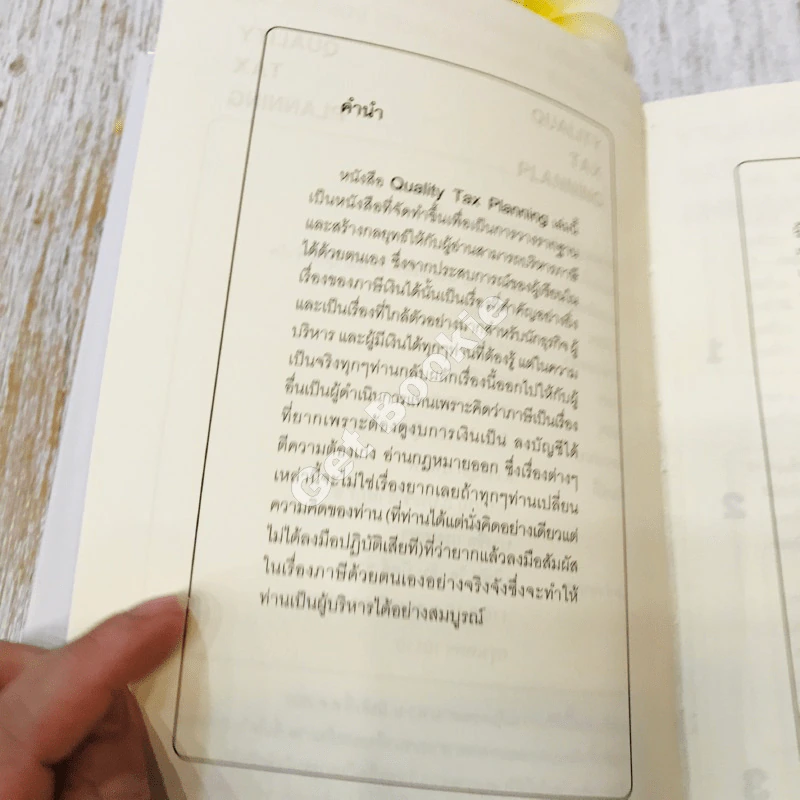 คำนำ
หนังสือ Quality Tax Planning เล่มนี้
เป็นหนังสือที่จัดทำขึ้นเพื่อเป็นการวางรากฐาน
และสร้างกลยุทธ์ให้กับผู้อ่านสามารถบริหารภาษี
ได้ด้วยตนเอง ซึ่งจากประสบการณ์ของผู้เขียนใน
เรื่องของภาษีเงินได้นั้นเป็นเรื่องสำคัญอย่างยิ่ง
และเป็นเรื่องที่ใกล้ตัวอย่างมากสำหรับนักธุรกิจ ผู้
บริหาร และผู้มีเงินได้ทุกๆท่านที่ต้องรู้ แต่ในความ
เป็นจริงทุกๆท่านกลับผลักเรื่องนี้ออกไปให้กับผู้
อื่นเป็นผู้ดำเนินการแทนเพราะคิดว่าภาษีเป็นเรื่อง
ที่ยากเพราะต้องดูงบการเงินเป็น ลงบัญชีได้
ตีความต้องเก่ง อ่านกฎหมายออก ซึ่งเรื่องต่างๆ
เหล่านี้จะไม่ใช่เรื่องยากเลยถ้าทุกๆท่านเปลี่ยน
ความคิดของท่าน (ที่ท่านได้แต่นั่งคิดอย่างเดียวแต่
ไม่ได้ลงมือปฏิบัติเสียที) ที่ว่ายากแล้วลงมือสัมผัส
ในเรื่องภาษีด้วยตนเองอย่างจริงจังซึ่งจะทำให้
ท่านเป็นผู้บริหารได้อย่างสมบูรณ์
Get Bookie